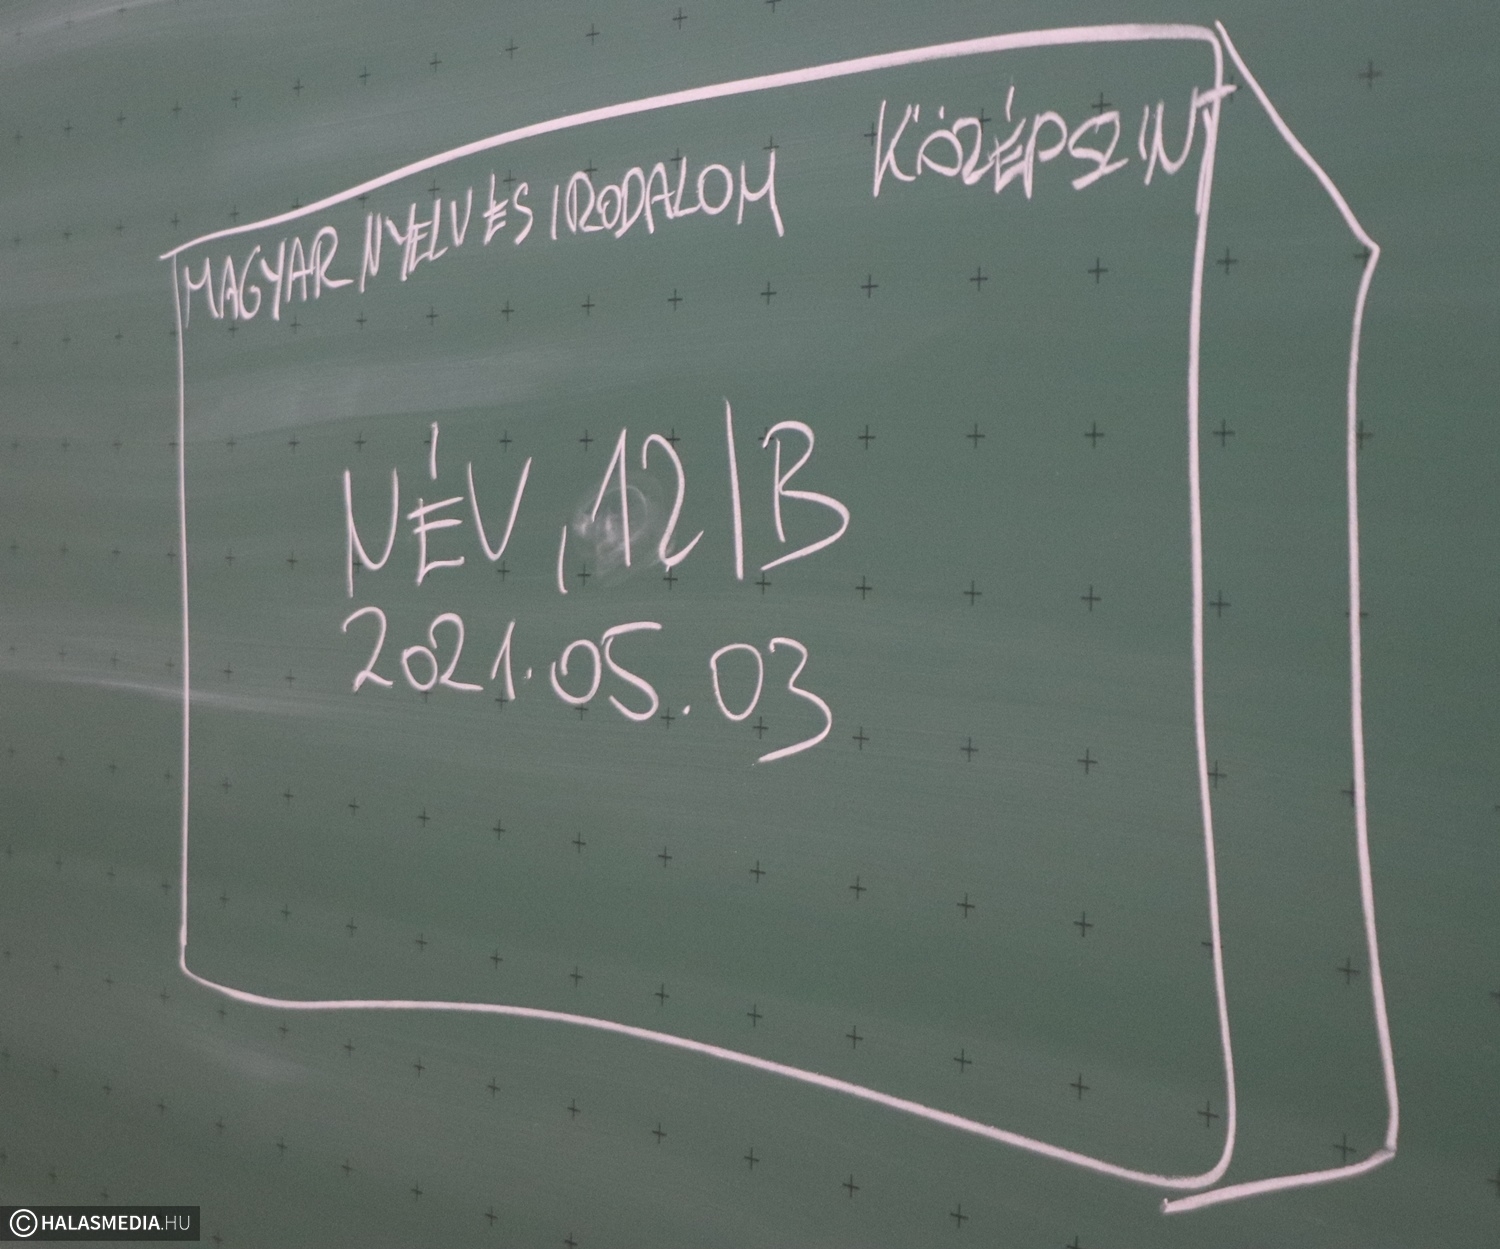 MAGYAR NYELV ÉS IRODALOM KÖZÉPSZINT
NÉV, 12/B
2021.05.03
© HALASMEDIA.HU